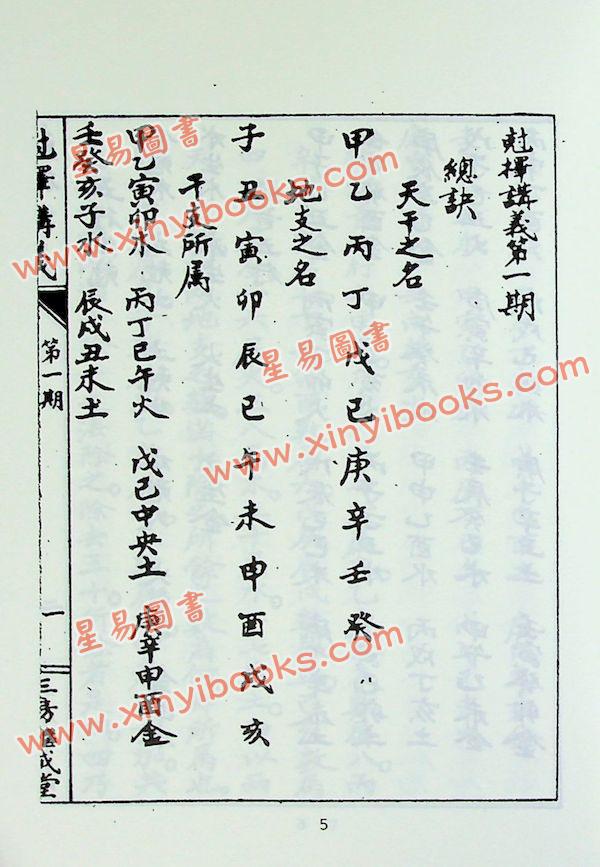 尅擇講義第一期
總訣
天干之名
甲乙丙丁戊己庚辛壬癸
地支之名
子丑寅卯辰巳午未申酉戌亥
干支所属
甲乙寅卯木 丙丁巳午火 戊己中央土 庚辛申酉金
壬癸亥子水 辰戌丑未土
尅擇講義 第一期 一 三房繼成堂
5
星易圖書
www.xinyibooks.com
星易圖書
www.xinyibooks.com
星易圖書
www.xinyibooks.com